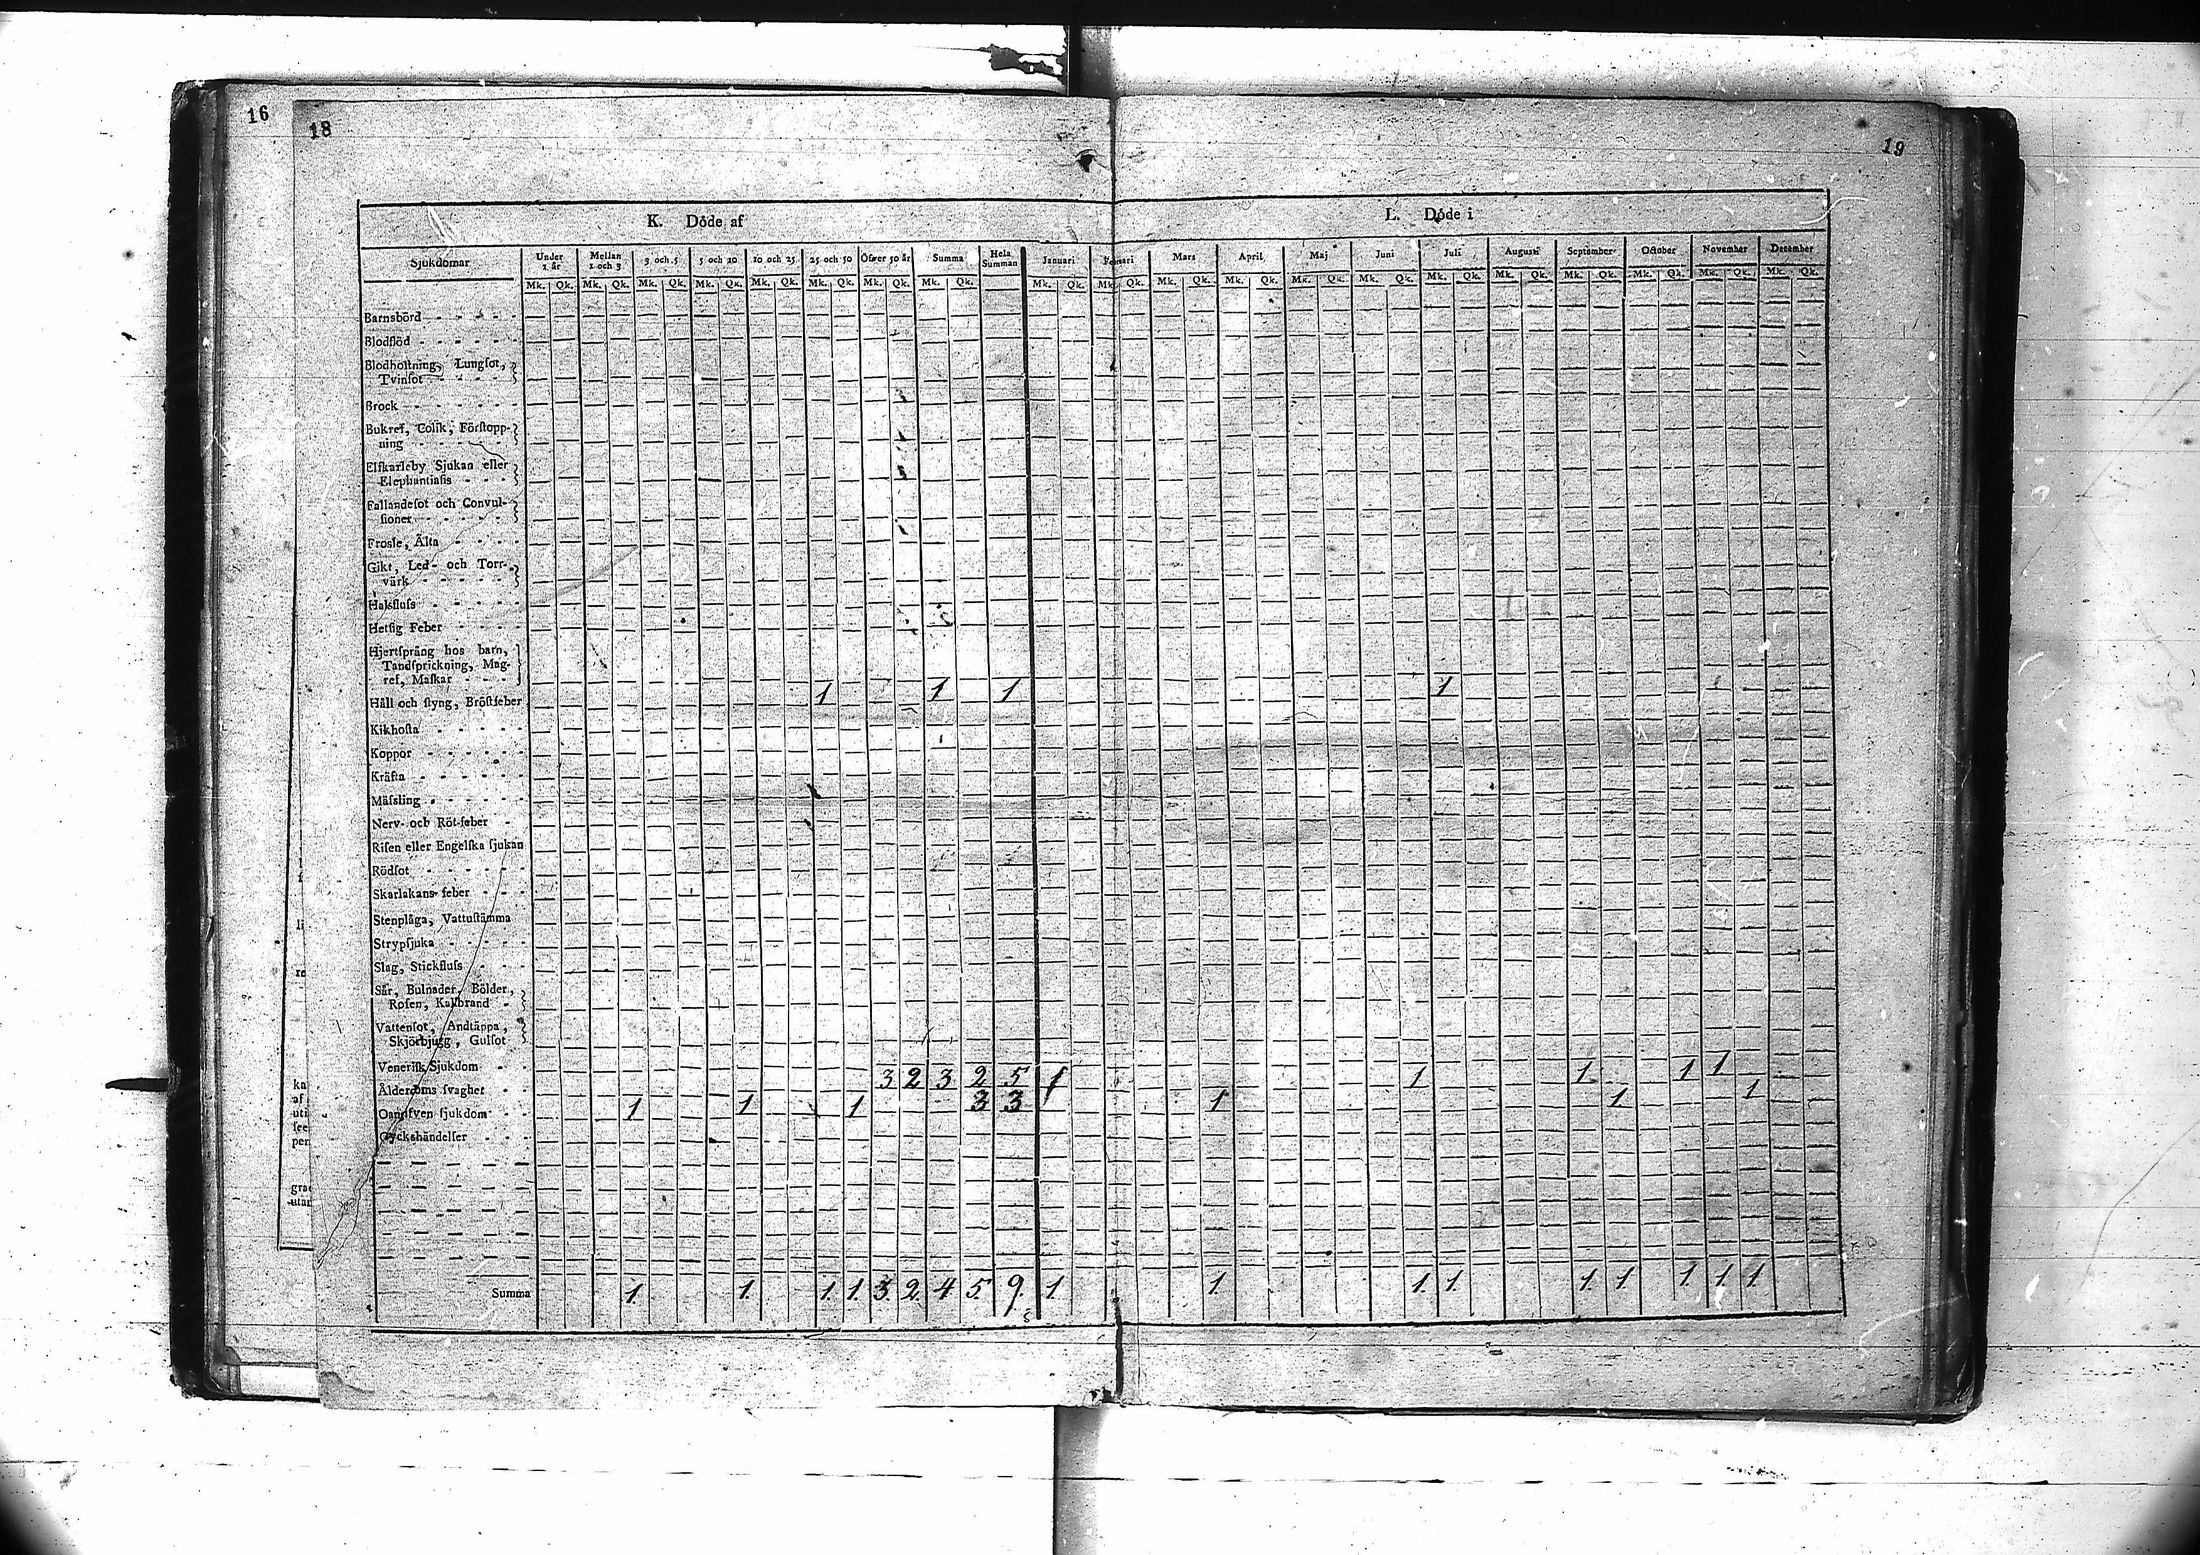 16
18
19
K. Döde af
L. Döde i
Sjukdomar Under 1 år Mellan 1 och 3 3 och 5 5 och 10 10 och 25 25 och 50 Öfwer 50 år Summa Hela Summan Januari Februari Mars April Maj Juni Juli Augusti September October November December
Mk. Qk. Mk. Qk. Mk. Qk. Mk. Qk. Mk. Qk. Mk. Qk. Mk. Qk. Mk. Qk. Mk. Qk. Mk. Qk. Mk. Qk. Mk. Qk. Mk. Qk. Mk. Qk. Mk. Qk. Mk. Qk. Mk. Qk. Mk. Qk. Mk. Qk. Mk. Qk.
Barnsbörd
Blodflöd
Blodhoſtning, Lungſot,
Tvinſot
Brock
Bukref, Colik, Förſtopp-
ning
Elfkarleby Sjukan eller
Elephantiaſis
Fallandeſot och Convul-
ſioner
Froſſe, Älta
Gikt, Led- och Torr-
värk
Halsfluſs
Hetſig Feber
Hjertſprång hos barn,
Tandſprickning, Mag-
ref, Maſkar
Håll och ſtyng, Bröſtfeber 1 1 1 1
Kikhoſta
Koppor
Kräfta
Mäſsling
Nerv- och Röt-feber
Riſen eller Engelſka ſjukan
Rödſot
Skarlakans-feber
Stenplåga, Vattuſtämma
Strypſjuka
Slag, Stickfluſs
Sår, Bulnader, Bölder,
Roſen, Kallbrand
Vattenſot, Andtäppa,
Skjörbjugg, Gulſot
Veneriſk Sjukdom
Ålderdoms ſvaghet 3 2 3 2 5 1 1 1 1 1
Oangifven ſjukdom 1 1 1 3 3 1 1 1
Olyckshändelſer
Summa 1. 1. 1. 1. 3. 2. 4 5. 9. 1. 1. 1. 1. 1. 1 1. 1. 1
li
re
ka
af
uti
ſee
per
utan